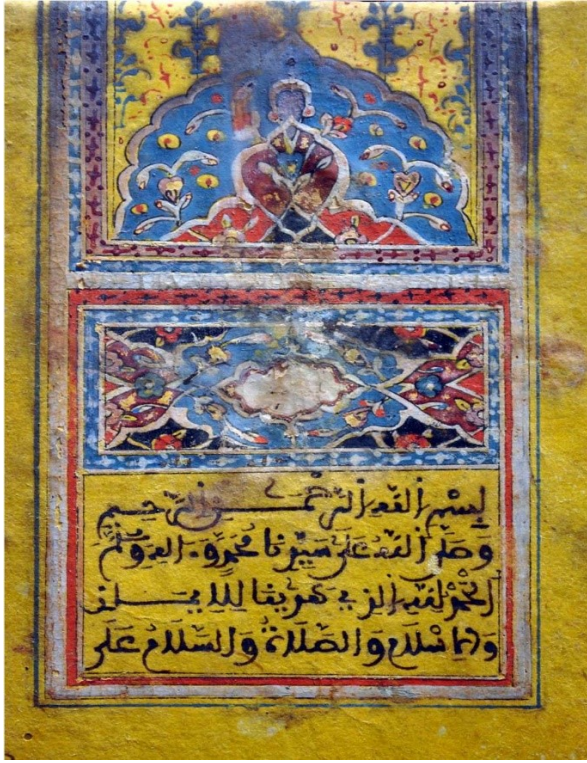 بسم الله الرحمن الرحيم
وصلى الله على سيدنا محمد وءاله وسلم
الحمد لله الذي هدينا للايمن
والاسلام والصلاة والسلام على